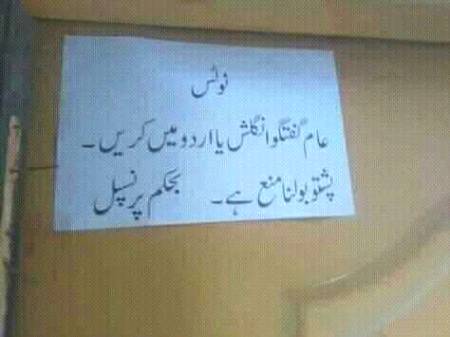 نوٹس
عام گفتگو انگلش یا اردو میں کریں۔
پشتو بولنا منع ہے۔ بحکم پرنسپل